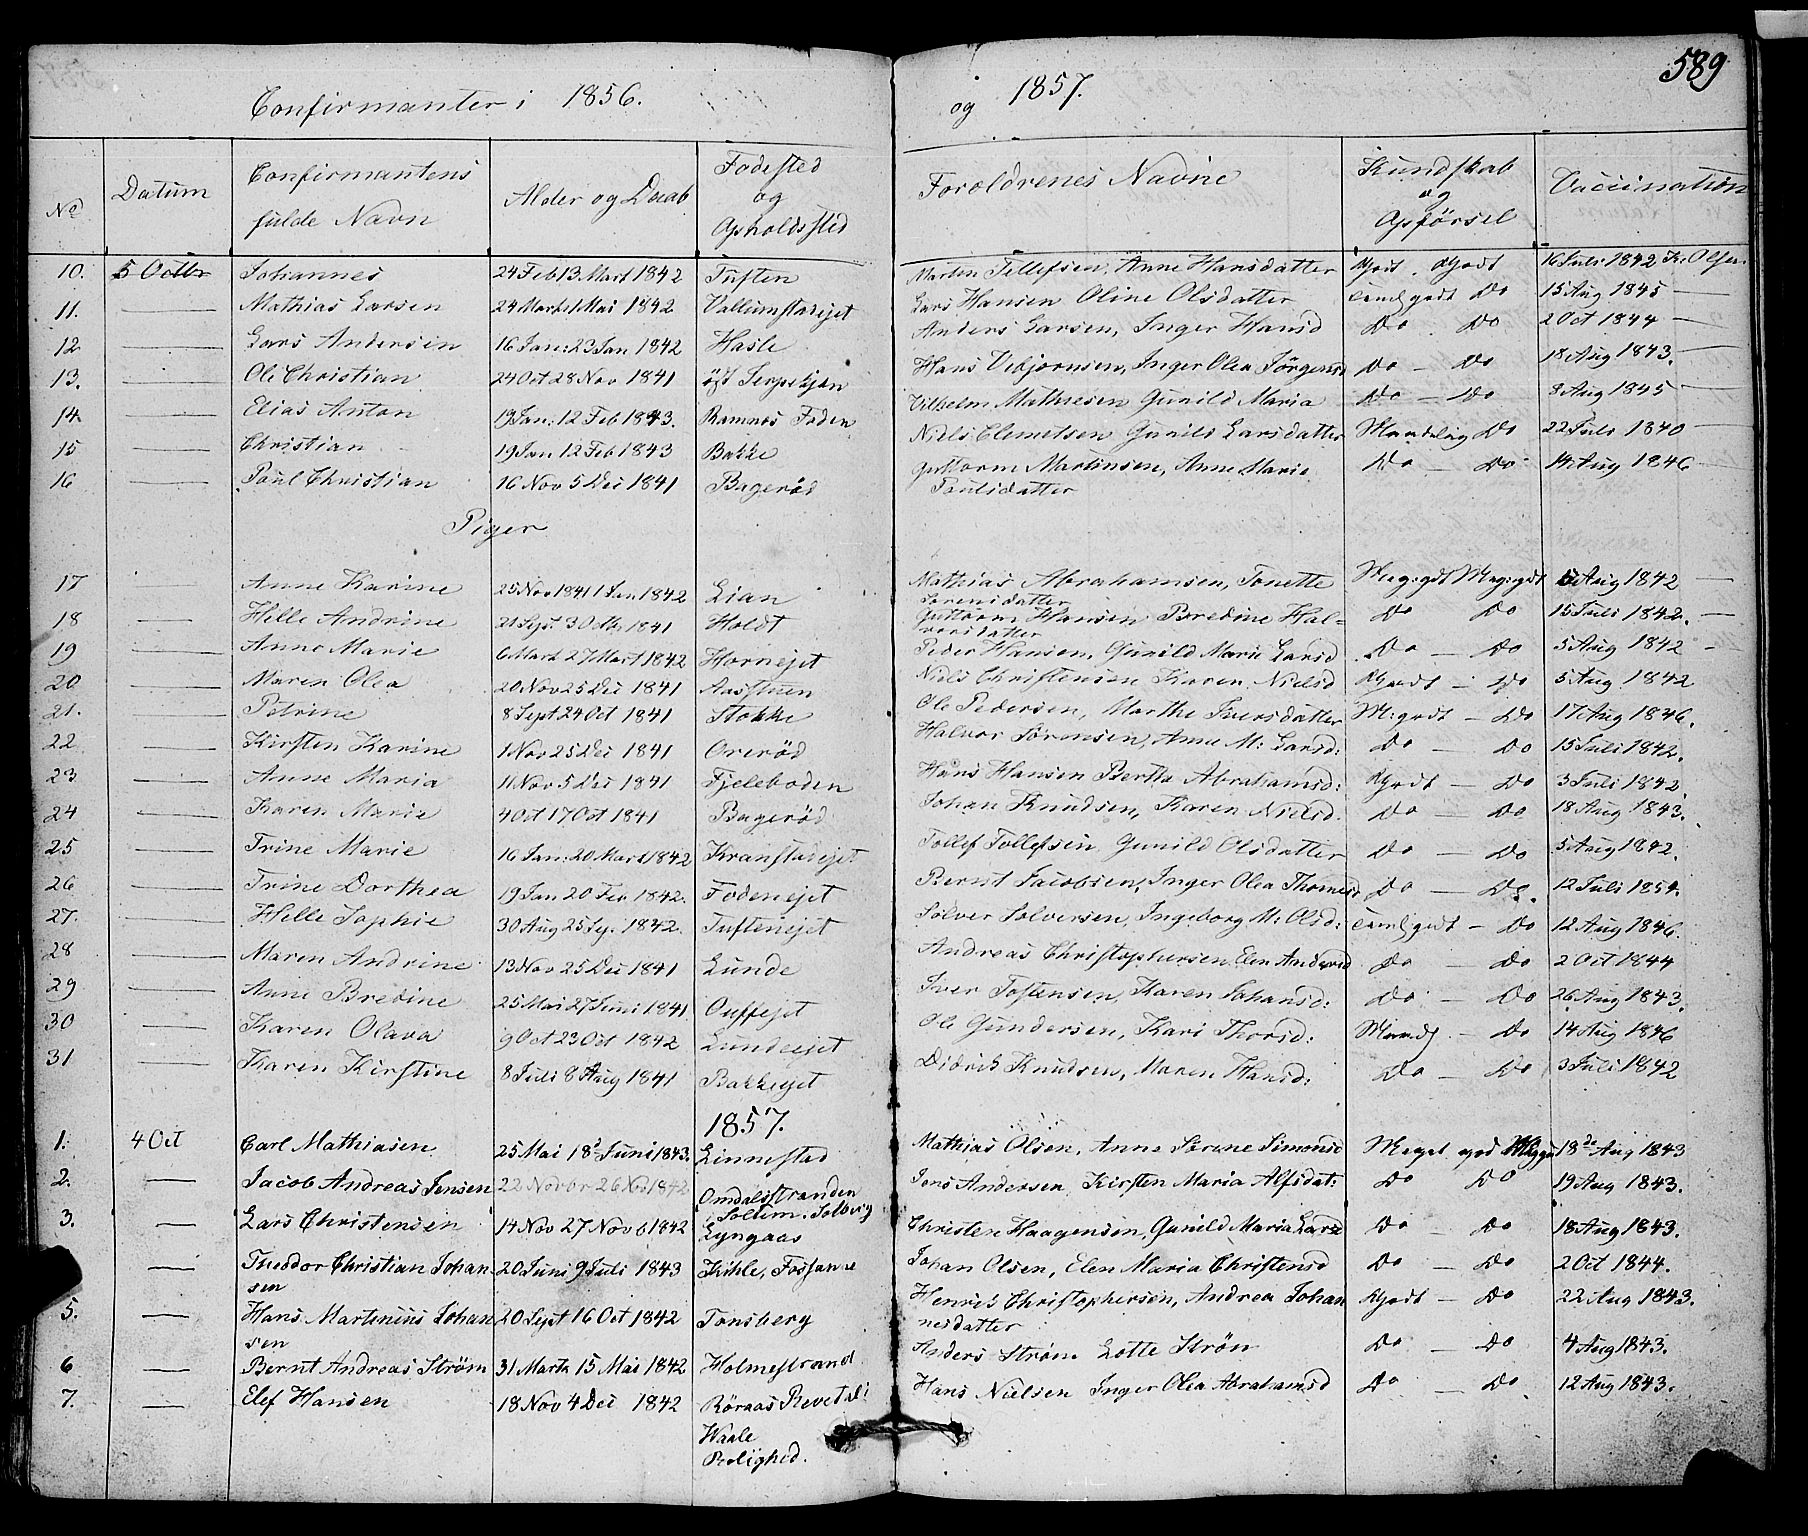 589
Confirmanter i 1856.
og 1857.
No Datum Confirmantens fulde Navn Alder og Daab Fødested og Opholdssted Forældrenes Navne Kundskab og Opførsel Vaccination
10. 5 Octbr Johannes 24 Feb 13 Mart 1842 Tuften Morten Tellefsen, Anne Hansdatter Godt. Godt 16 Juli 1842 Fr. Olsen
11. Mathias Larsen 24 Mart 1 Mai 1842 Vallumstadejet Lars Hansen Oline Olsdatter Teml godt Do 15 Aug 1845
12 Lars Andersen 16 Jan: 23 Jan 1842 Hasle Anders Larsen, Inger Hansd Do. Do 2 Oct 1844
13. Ole Christian 24 Oct 28 Nov 1841 øst Serpekjøn Hans Vebjørnsen, Inger Olea Jörgensd Do - Do 18 Aug 1843.
14 Elias Anton 19 Jan: 12 Feb 1843. Ramnes Foden Vilhelm Mathiesen Gunild Maria Do - Do 8 Aug 1845
15 Christian 19 Jan 12 Feb 1843 Bakke Niels Clemetsen Gunild Larsdatter Maadelig Do 22 Juli 1840
16 Poul Christian 16 Nov 5 Dec 1841 Bagerød Guttorm Martinsen, Anne Marie Do - Do 14 Aug 1846
Poulsdatter
Piger
17 Anne Karine 25 Nov 1841 1 Jan 1842 Lian Mathias Abrahamsen, Tonette Meg: gdt Meg: gdt 5 Aug 1842
Sørensdatter
18 Helle Andrine 21 Sept 3 Octb. 1841 Holdt Guttorm Hansen Bredine Hal= Do Do 15 Juli 1842.
vorsdatter
19 Anne Marie 6 Mart 27 Mart 1842 Hornejet Peder Hansen, Gunild Marie Larsd Do - Do 5 Aug 1842
20 Maren Olea 20 Nov 25 Dec 1841 Aasstuen Niels Christensen Karen Nielsd Godt - Do 5 Aug 1842
21. Petrine 8 Sept 24 Oct 1841 Stokke Ole Pedersen, Marthe Iversdatter M: godt - Do 17 Aug 1846.
22 Kirsten Karine 1 Nov 25 Dec 1841 Orerød Halvor Sørensen, Anne M: Larsd: Do - Do 15 Juli 1842.
23 Anne Maria 11 Nov 5 Dec 1841 Fjeleboden Hans Hansen Berthe Abrahamsd: Godt - Do 3 Juli 1842
24 Karen Marie 4 Oct 17 Oct 1841 Bagerød Johan Knudsen, Karen Nielsd. Do - Do 18 Aug 1843.
25 Trine Marie 16 Jan: 20 Mart 1842 Kranstadejet Tollef Tollefsen Gunild Olsdatter Do - Do 5 Aug 1842.
26 Trine Dorthea 19 Jan 20 Fev 1842. Fodenejet Bernt Jacobsen, Inger Olea Thomesd Do - Do. 12 Juli 1851.
27. Helle Sophie 30 Aug 25 Sep. 1842. Tuftenejet Sølver Solversen, Ingeborg M: Olsd: Teml godt - Do 12 Aug 1846.
28 Maren Andrine 13 Nov 25 Dec 1841 Lunde Andreas Christophersen Elen Andersd Do - Do 2 Oct 1844
29 Anne Bredine 25 Mai 27 Juni 1841 Ouffejet Iver Tostensen, Karen Johansd: Do - Do 26 Aug 1843.
30 Karen Olava 9 Oct 23 Oct 1842 Lundeejet Ole Gundersen, Kari Thorsd: Maadl. - Do 14 Aug 1846
31 Karen Kirstine 8 Juli 8 Aug 1841 Bakkejet Didrik Knudsen, Maren Hansd: Do - Do 3 Juli 1842
1857.
1. 4 Oct Carl Mathiasen 25 Mai 18 Juni 1843. Linnestad Mathias Olsen, Anne Sørene Simonsd Meget god Meget 18de Aug 1843
2. Jacob Andreas Jensen 22 Novbr 26 Nov 1842 Omdalsstranden Jens Andersen Kirsten Maria Alfsdat: Do Do 19 Aug 1843.
Soltem. Solberg
3. Lars Christensen 14 Nov 27 Novb 1842 Lyngaas Christen Haagensen, Gunild Maria Larsd Do - Do 18 Aug 1843.
Theodor Christian Johan 20 Juni 9 Juli 1843 Kihle, Fossane Johan Olsen, Elen Maria Christensd Do - Do 2 Oct 1844.
sen
5. Hans Martinius Johan 20 Sept 16 Oct 1842 Tønsberg Henrik Christophersen, Andrea Johan Godt - Do 22 Aug 1843.
sen nesdatter
6 Bernt Andreas Strøm 31 Marts 15 Mai 1842 Holmestrand Anders Strøm Lotte Strøm Do - Do 4 Aug 1843.
7. Elef Hansen 18 Nov 4 Dec 1842 Röraas Revetal Hans Nielsen Inger Olea Abrahamsd Do - Do 12 Aug 1843.
Waale